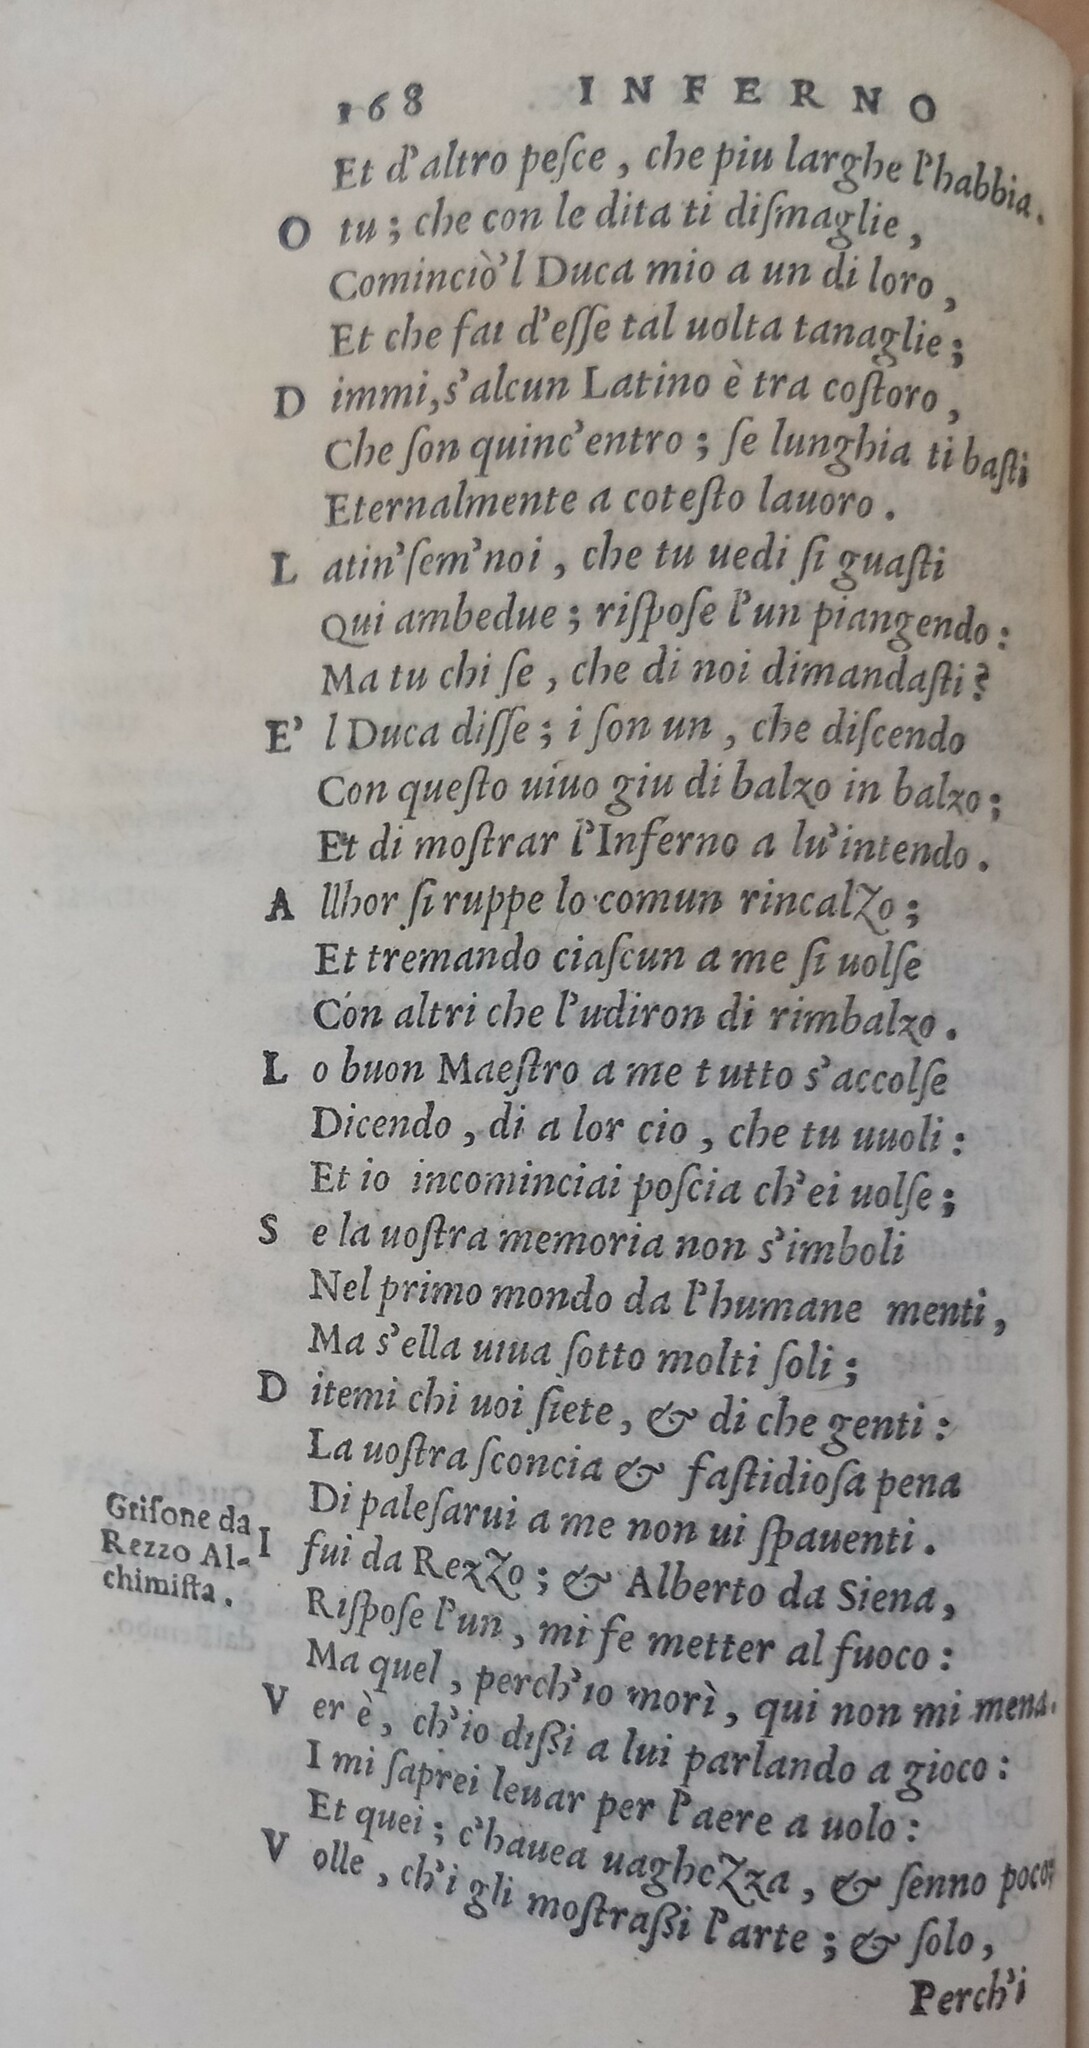 168 INFERNO
Et d'altro peſce, che piu larghe l'habbia.
O tu; che con le dita ti diſmaglie,
Cominciò'l Duca mio a un di loro,
Et che fai d'eſſe tal uolta tanaglie;
D immi, s'alcun Latino è tra coſtoro,
Che ſon quinc'entro; ſe lunghia ti baſti
Eternalmente a coteſto lauoro.
L atin'ſem'noi, che tu uedi ſi guaſti
Qui ambedue; riſpoſe l'un piangendo:
Ma tu chi ſe, che di noi dimandaſti?
E' l Duca diſſe; i ſon un, che diſcendo
Con queſto uiuo giu di balzo in balzo;
Et di moſtrar l'Inferno a lu'intendo.
A llhor ſi ruppe lo comun rincalzo;
Et tremando ciaſcun a me ſi uolſe
Con altri che l'udiron di rimbalzo.
L o buon Maeſtro a me tutto s'accolſe
Dicendo, di a lor cio, che tu uuoli:
Et io incominciai poſcia ch'ei uolſe;
S e la uoſtra memoria non s'imboli
Nel primo mondo da l'humane menti,
Ma s'ella uiua ſotto molti ſoli;
D itemi chi uoi ſiete, & di che genti:
La uoſtra ſconcia & faſtidioſa pena
Di paleſarui a me non ui ſpauenti.
Griſone da
Rezzo Al-
chimiſta.
I fui da Rezzo; & Alberto da Siena,
Riſpoſe l'un, mi fe metter al fuoco:
Ma quel, perch'io morì, qui non mi mena.
V er è, ch'io dißi a lui parlando a gioco:
I mi ſaprei leuar per l'aere a uolo:
Et quei; c'hauea uaghezza, & ſenno poco;
V olle, ch'i gli moſtraßi l'arte; & ſolo,
Perch'i